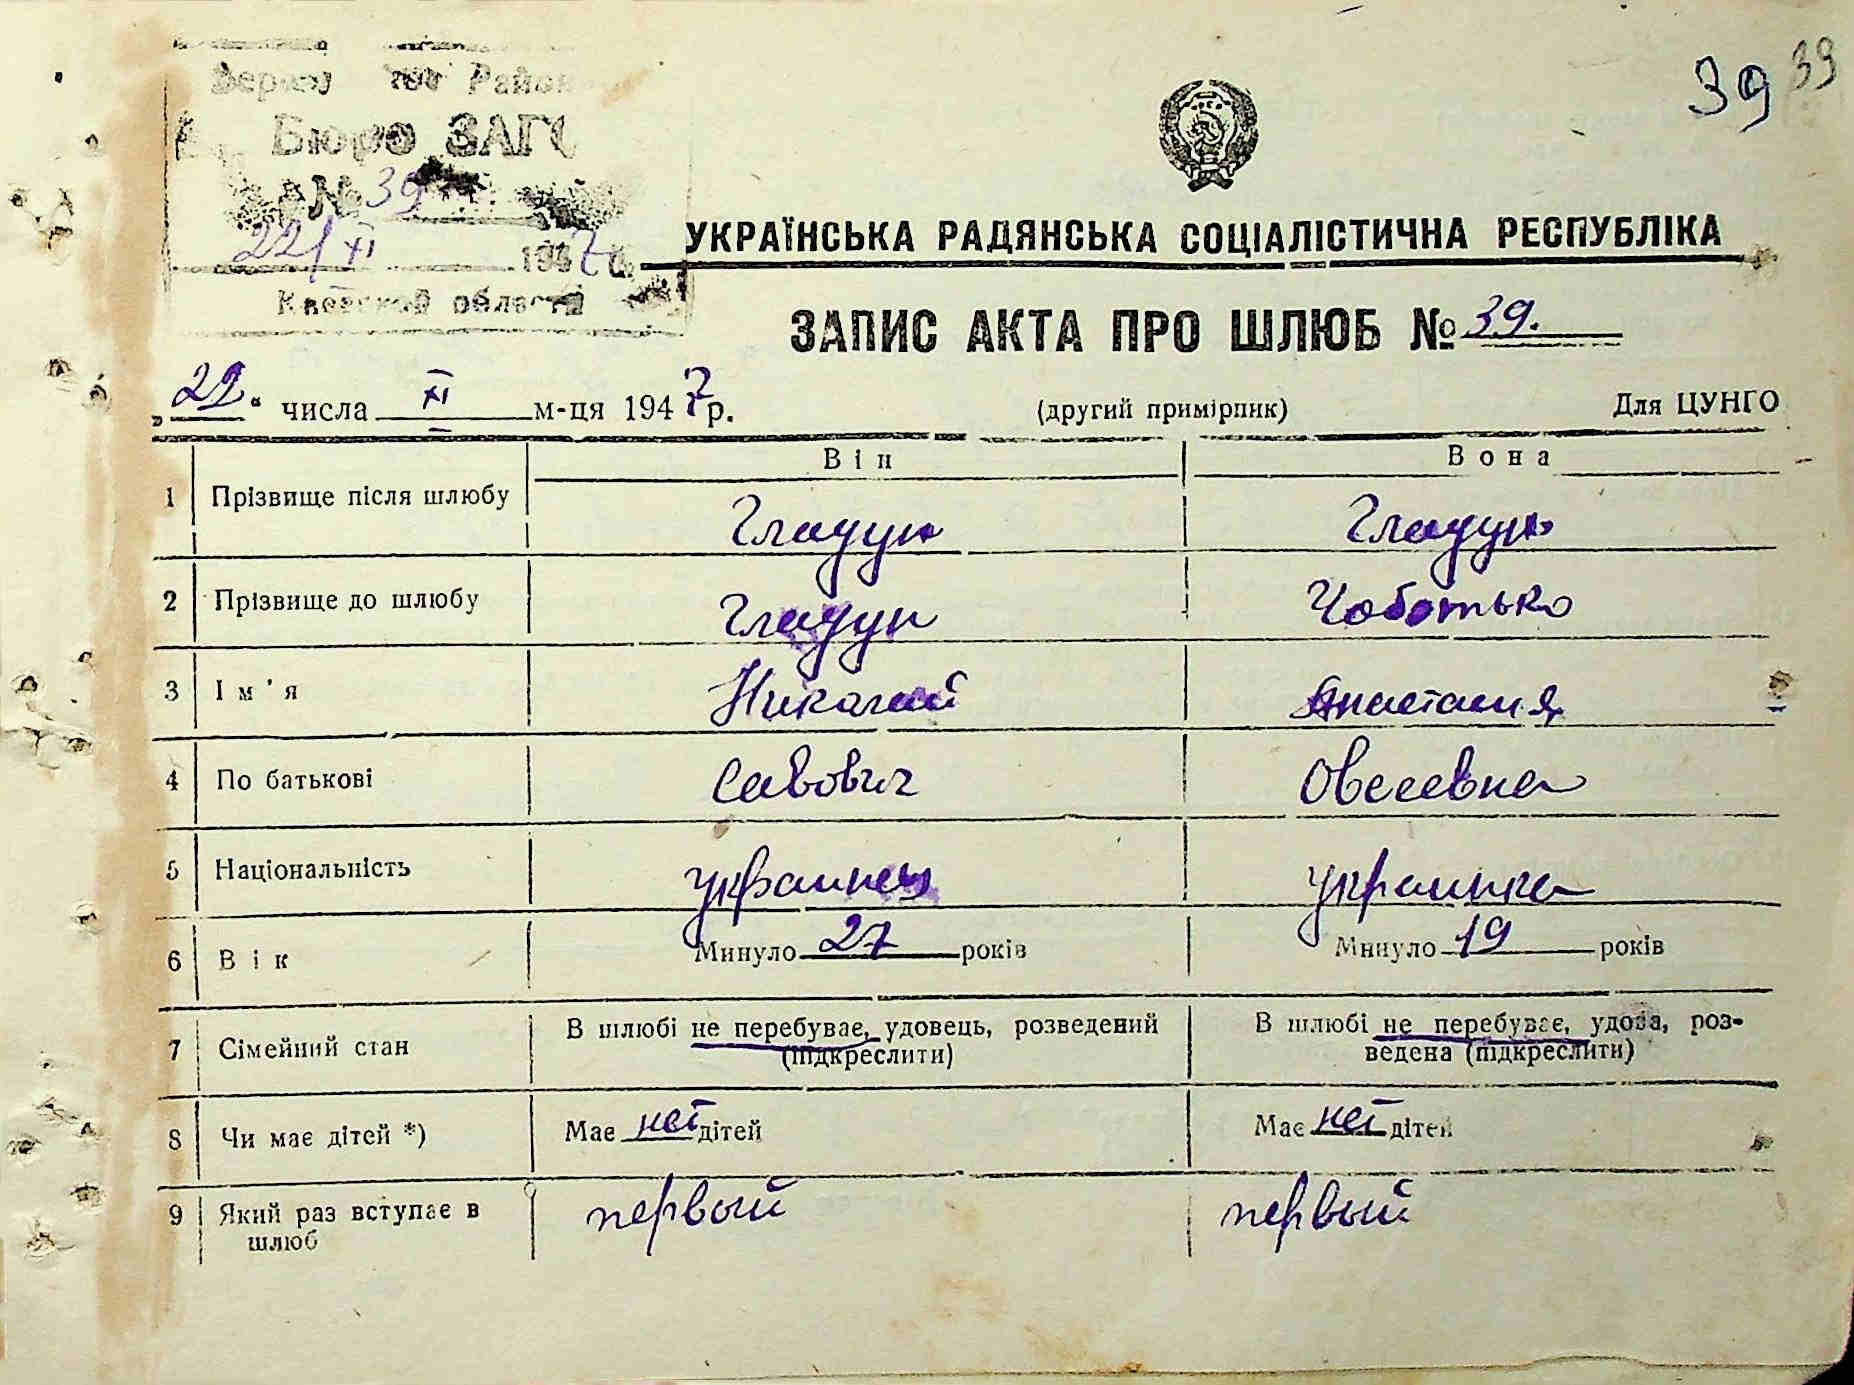 39 39
Район
Бюро ЗАГС
№ 39
22/XI 1947 г.
Киевской области
УКРАЇНСЬКА РАДЯНСЬКА СОЦІАЛІСТИЧНА РЕСПУБЛІКА
ЗАПИС АКТА ПРО ШЛЮБ № 39.
„22“ числа XI м-ця 1947 р. (другий примірник) Для ЦУНГО
Він Вона
1 Прізвище після шлюбу Гладун Гладун
2 Прізвище до шлюбу Гладун Чоботько
3 Ім'я Николай Анастасия
4 По батькові Савович Овсеевна
5 Національність украинец украинка
6 Вік Минуло 27 років Минуло 19 років
7 Сімейний стан В шлюбі не перебуває, удовець, розведений (підкреслити) В шлюбі не перебуває, удова, роз-
ведена (підкреслити)
8 Чи має дітей *) Має нет дітей Має нет дітей
9 Який раз вступає в шлюб первый первый